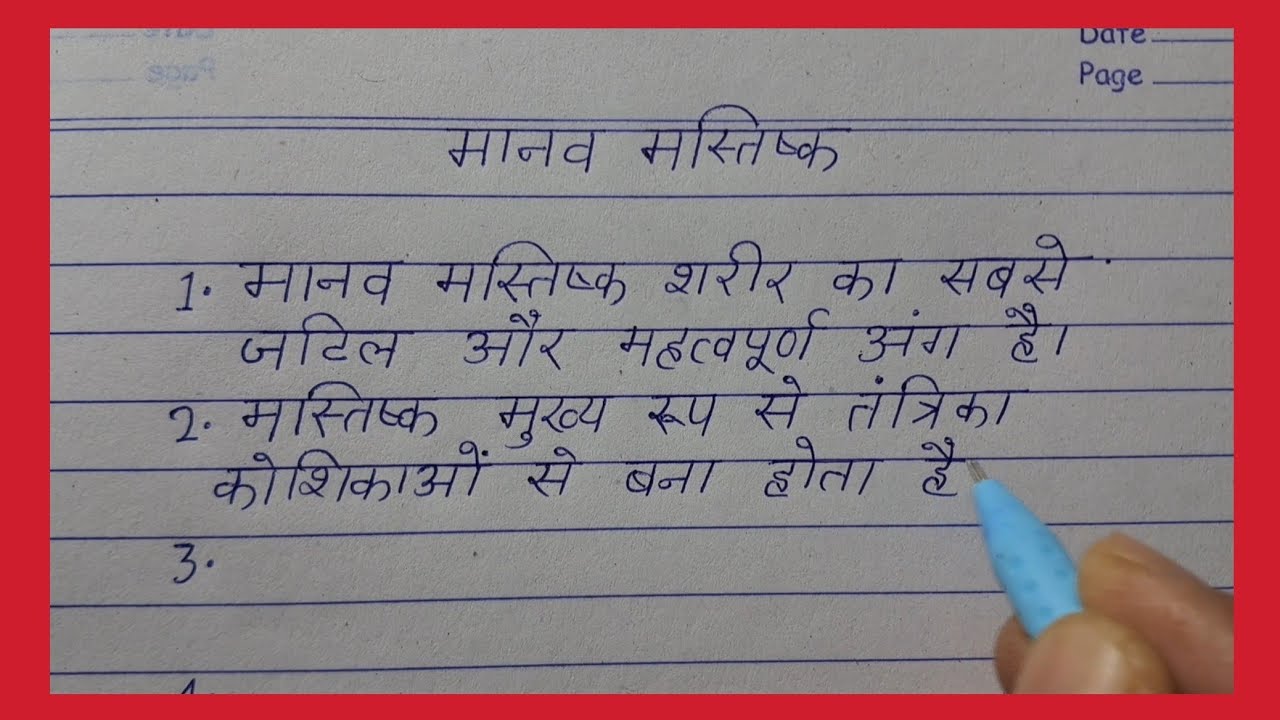 Date
Page
मानव मस्तिष्क
1. मानव मस्तिष्क शरीर का सबसे
जटिल और महत्वपूर्ण अंग है।
2. मस्तिष्क मुख्य रूप से तंत्रिका
कोशिकाओं से बना होता है
3.